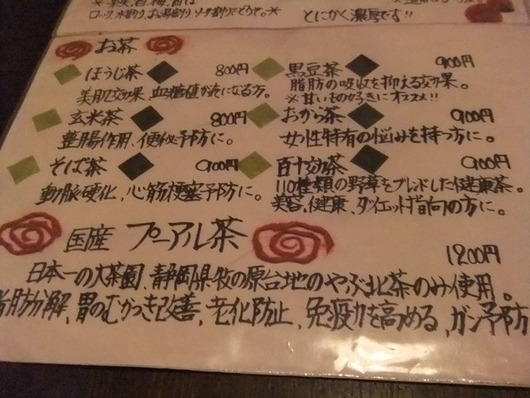 ロック、水割り、お湯割り、ソーダ割りでどうぞ。※
とにかく濃厚です!!
お茶
ほうじ茶 800円
美肌効果、血糖値が気になる方。
玄米茶 800円
整腸作用、便秘予防に。
そば茶 900円
動脈硬化、心筋梗塞予防に。
黒豆茶 900円
脂肪の吸収を抑える効果。
※甘いもの好きにオススメ!!
おから茶 900円
女性特有の悩みを持つ方に。
百十効茶 900円
110種類の野草をブレンドした健康茶。
美容、健康、ダイエット指向の方に。
国産 プーアル茶 1200円
日本一の大茶園、静岡県牧の原台地のやぶ北茶のみ使用。
脂肪分解、胃のむかつき改善、老化防止、免疫力を高める、ガン予防